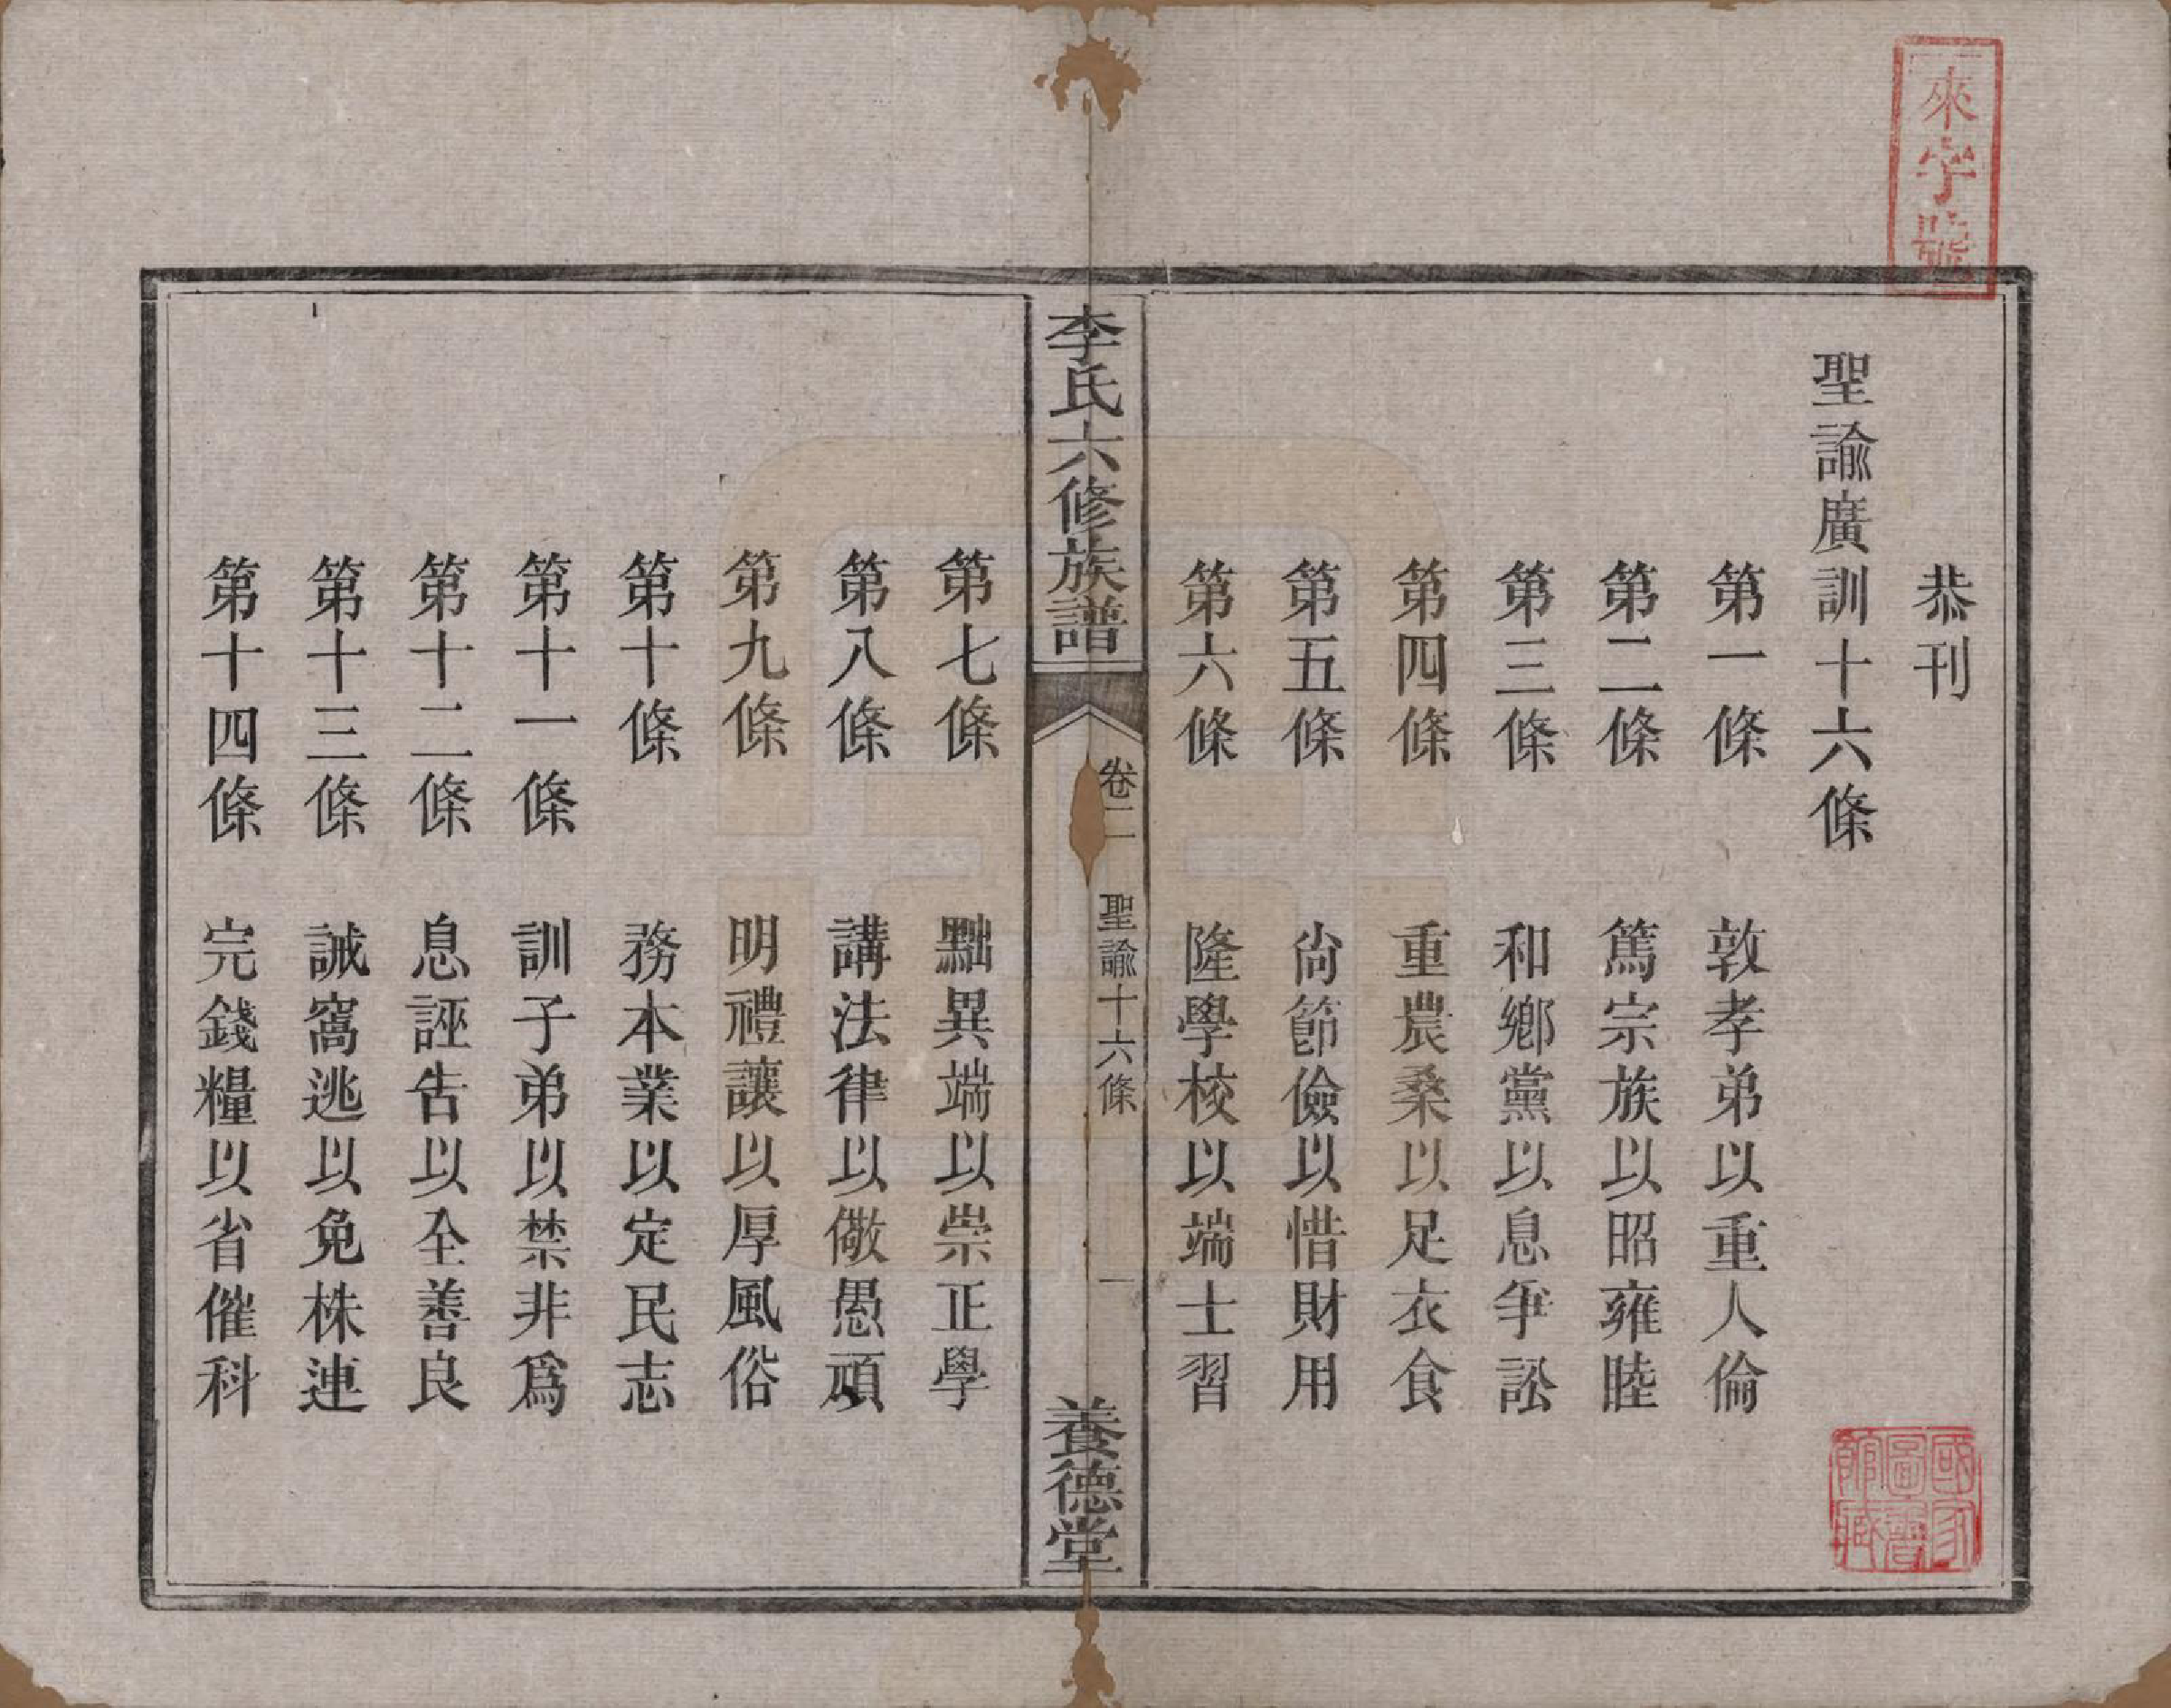 來字號
恭刊
聖諭廣訓十六條
第一條 敦孝弟以重人倫
第二條 篤宗族以昭雍睦
第三條 和鄉黨以息爭訟
第四條 重農桑以足衣食
第五條 尙節儉以惜財用
第六條 隆學校以端士習
國家圖書館藏
李氏六修族譜
卷二 聖諭十六條 一
養德堂
第七條 黜異端以崇正學
第八條 講法律以儆愚頑
第九條 明禮讓以厚風俗
第十條 務本業以定民志
第十一條 訓子弟以禁非爲
第十二條 息誣告以全善良
第十三條 誡窩逃以免株連
第十四條 完錢糧以省催科